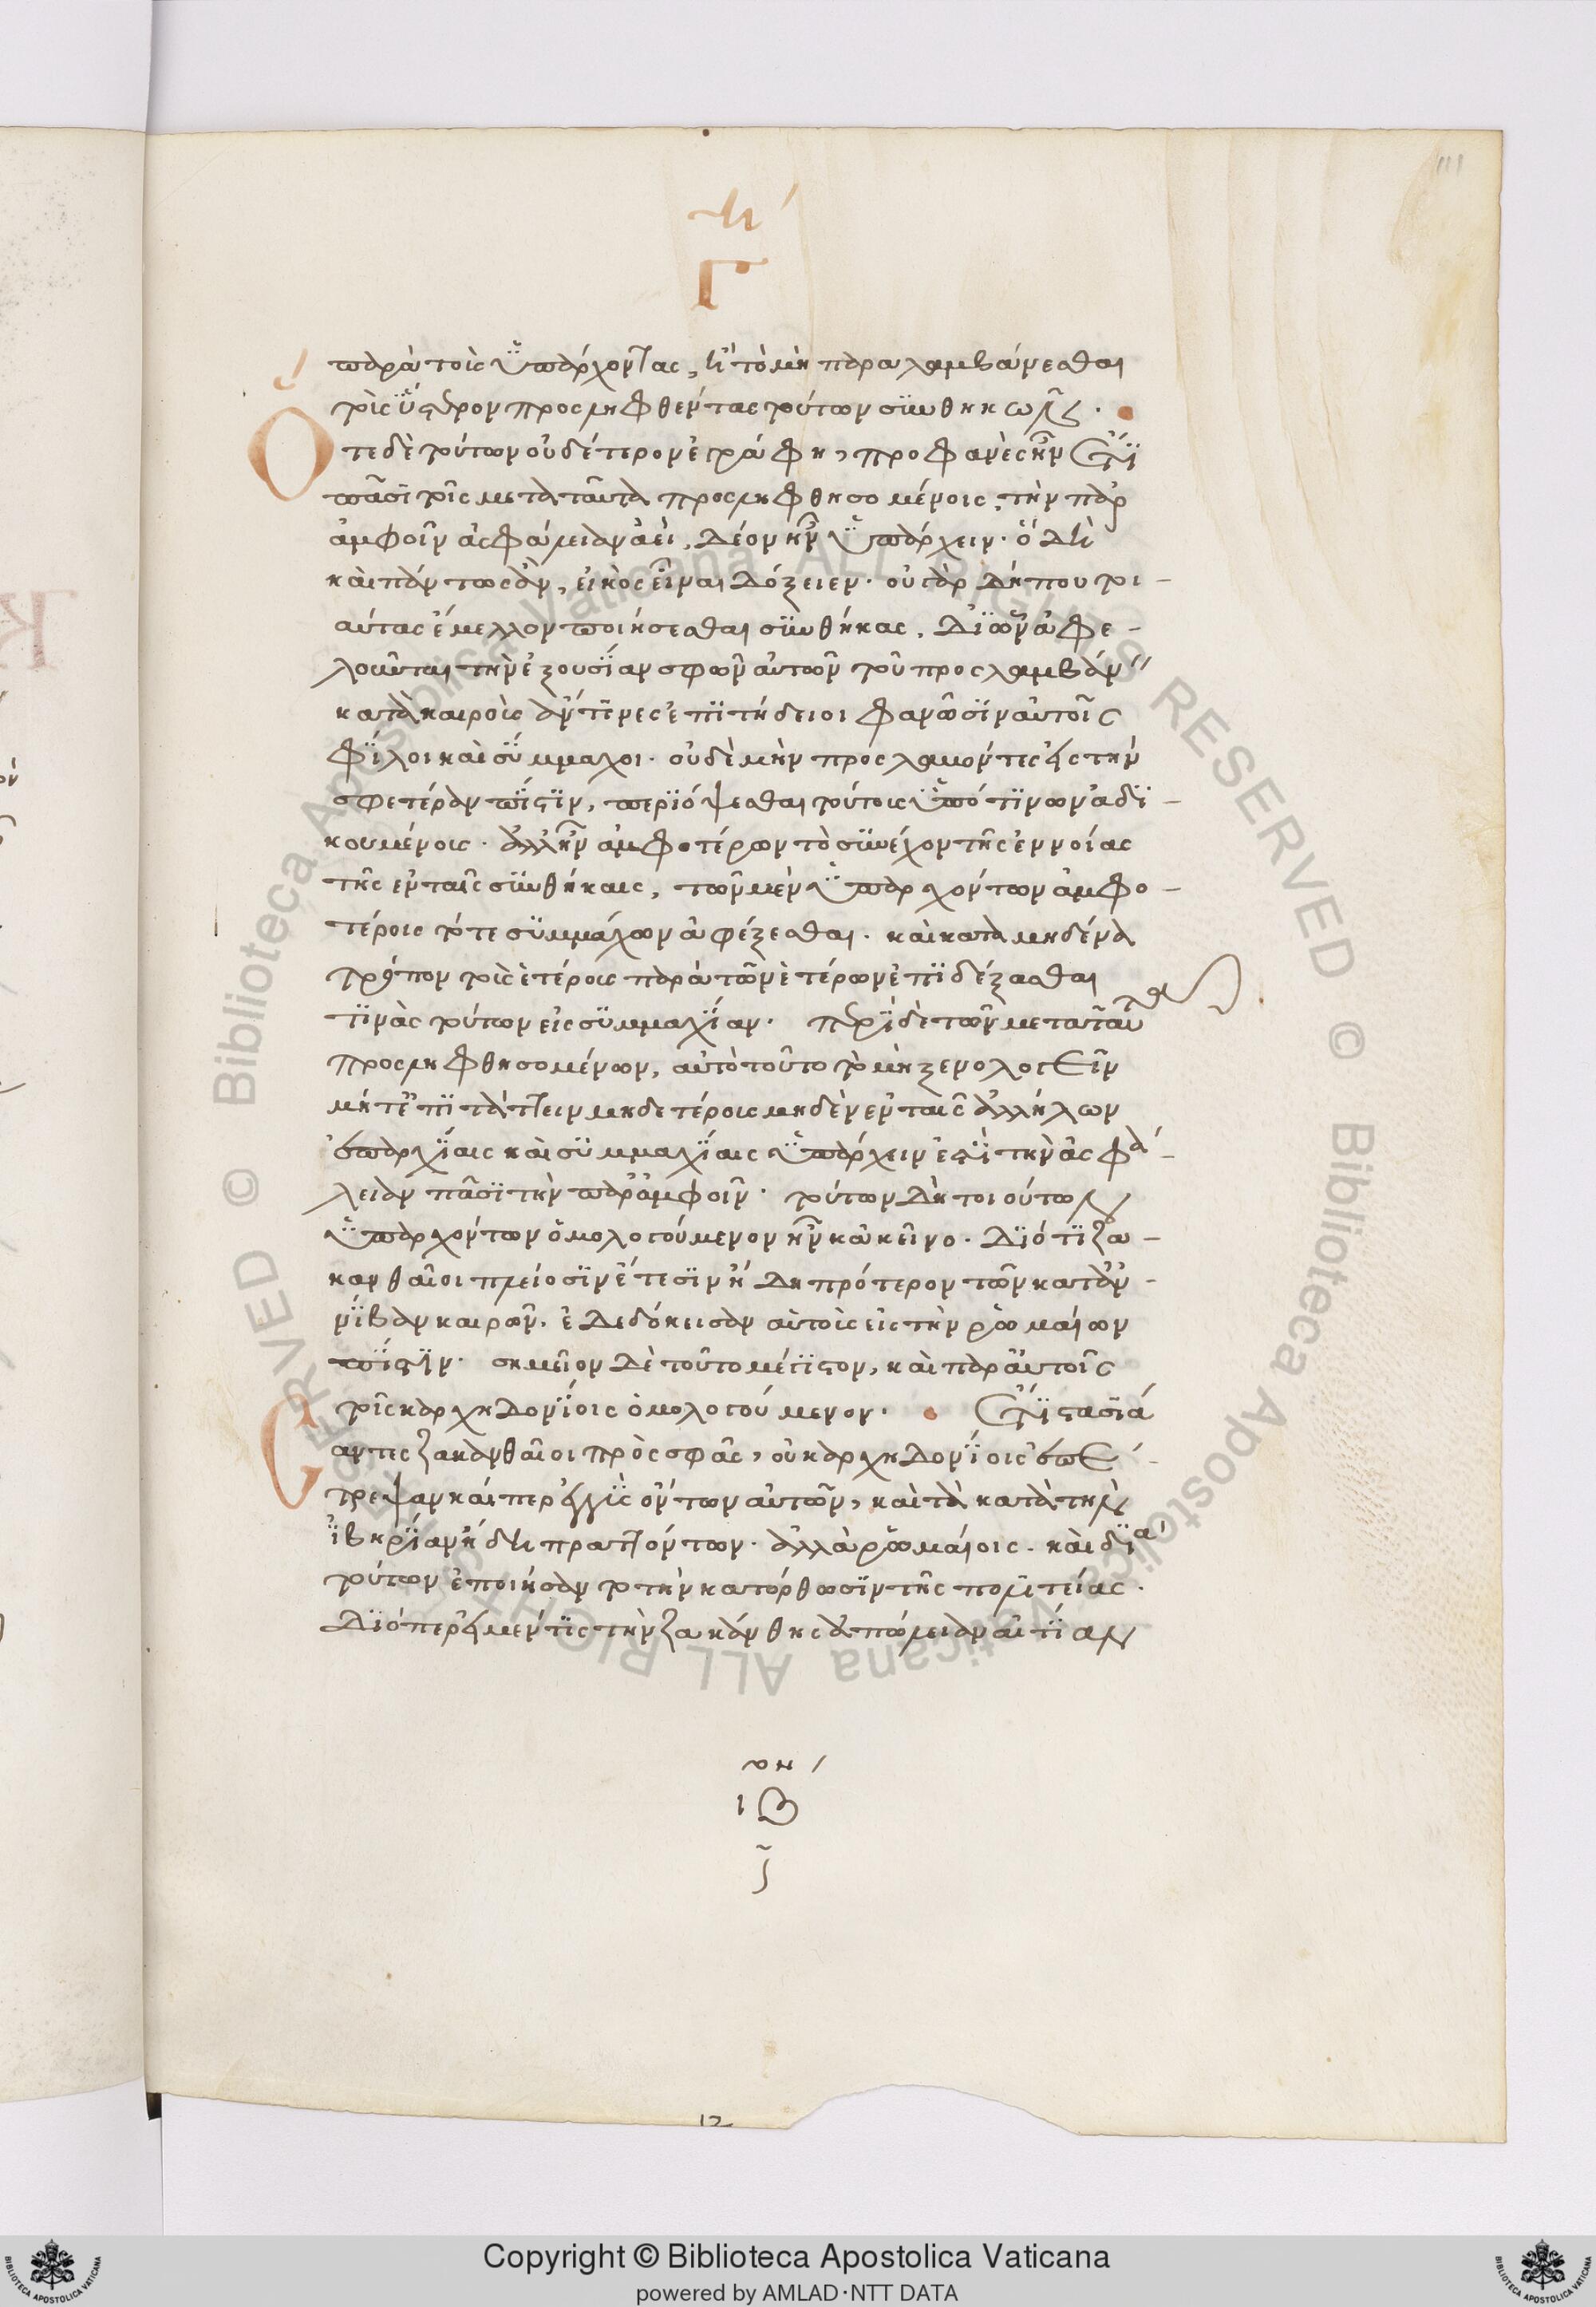 η
Γ
παρὰ τοὺς ὑπάρχοντας, ἢ τὸ μὴ παραλαμβάνεσθαι
τοὺς ὕστερον προσληφθέντας τούτων συνθηκῶν.
Ὅτε δὲ τούτων οὐδέτερον ἐγράφη, προφανὲς ἦν ὅτι
πᾶσι τοῖς μετὰ ταῦτα προσληφθησομένοις, τὴν παρ
ἀμφοῖν ἀσφάλειαν ἀεὶ, δέον ἦν ὑπάρχειν. ὃ δὴ
καὶ πάντως ἂν, εἰκὸς εἶναι δόξειεν. οὐ γὰρ δήπου τοι-
αύτας ἔμελλον ποιήσεσθαι συνθήκας, δι' ὧν ἀφε-
λοῦνται τὴν ἐξουσίαν σφῶν αὐτῶν τοῦ προσλαμβάνειν
κατὰ καιροὺς ἄν τινες ἐπιτήδειοι φανῶσιν αὐτοῖς
φίλοι καὶ σύμμαχοι. οὐδὲ μὴν προσλαμόντες εἰς τὴν
σφετέραν πίστιν, περιόψεσθαι τούτους ὑπό τινων ἀδι-
κουμένους. ἀλλ' ἦν ἀμφοτέρων τὸ συνέχον τῆς ἐννοίας
τῆς ἐν ταῖς συνθήκαις, τῶν μὲν ὑπαρχόντων ἀμφο-
τέροις τότε συμμάχων ἀφέξεσθαι. καὶ κατὰ μηδένα
τρόπον τοὺς ἑτέρους παρὰ τῶν ἑτέρων ἐπιδέξασθαι
τινὰς τούτων εἰς συμμαχίαν. περὶ δὲ τῶν μετὰ ταῦτα
προσληφθησομένων, αὐτὸ τοῦτο τὸ μὴ ξενολογεῖν
μήτ' ἐπιτάττειν μηδετέρους μηδὲν ἐν ταῖς ἀλλήλων
ἐπαρχίαις καὶ συμμαχίαις ὑπάρχειν ἐπὶ τὴν ἀσφά-
λειαν πᾶσι τὴν παρ' ἀμφοῖν. τούτων δὴ τοι οὕτως
ὑπαρχόντων ὁμολογούμενον ἦν κἀκεῖνο. διότι ζα-
κανθαῖοι πλείοσιν ἔτεσιν ἤδη πρότερον τῶν κατ' ἀν-
νίβαν καιρῶν. ἐδεδόκεισαν αὑτοὺς εἰς τὴν ῥωμαίων
πίστιν. σημεῖον δὲ τοῦτο μέγιστον, καὶ παρ' αὐτοῖς
τοῖς καρχηδονίοις ὁμολογούμενον. ὅτι στασιά
σαντες ζακανθαῖοι πρὸς σφᾶς, οὐ καρχηδονίοις ἐπέ-
τρεψαν καίπερ ἐγγὺς ὄντων αὐτῶν, καὶ τὰ κατὰ τὴν
ἰβηρίαν ἤδη πραττόντων. ἀλλὰ ῥωμαίοις. καὶ διὰ
τούτων ἐποιήσαντο τὴν κατόρθωσιν τῆς πολιτείας.
διόπερ εἰ μέν τις τὴν ζακάνθης ἀπώλειαν αἰτίαν
ιβ
12